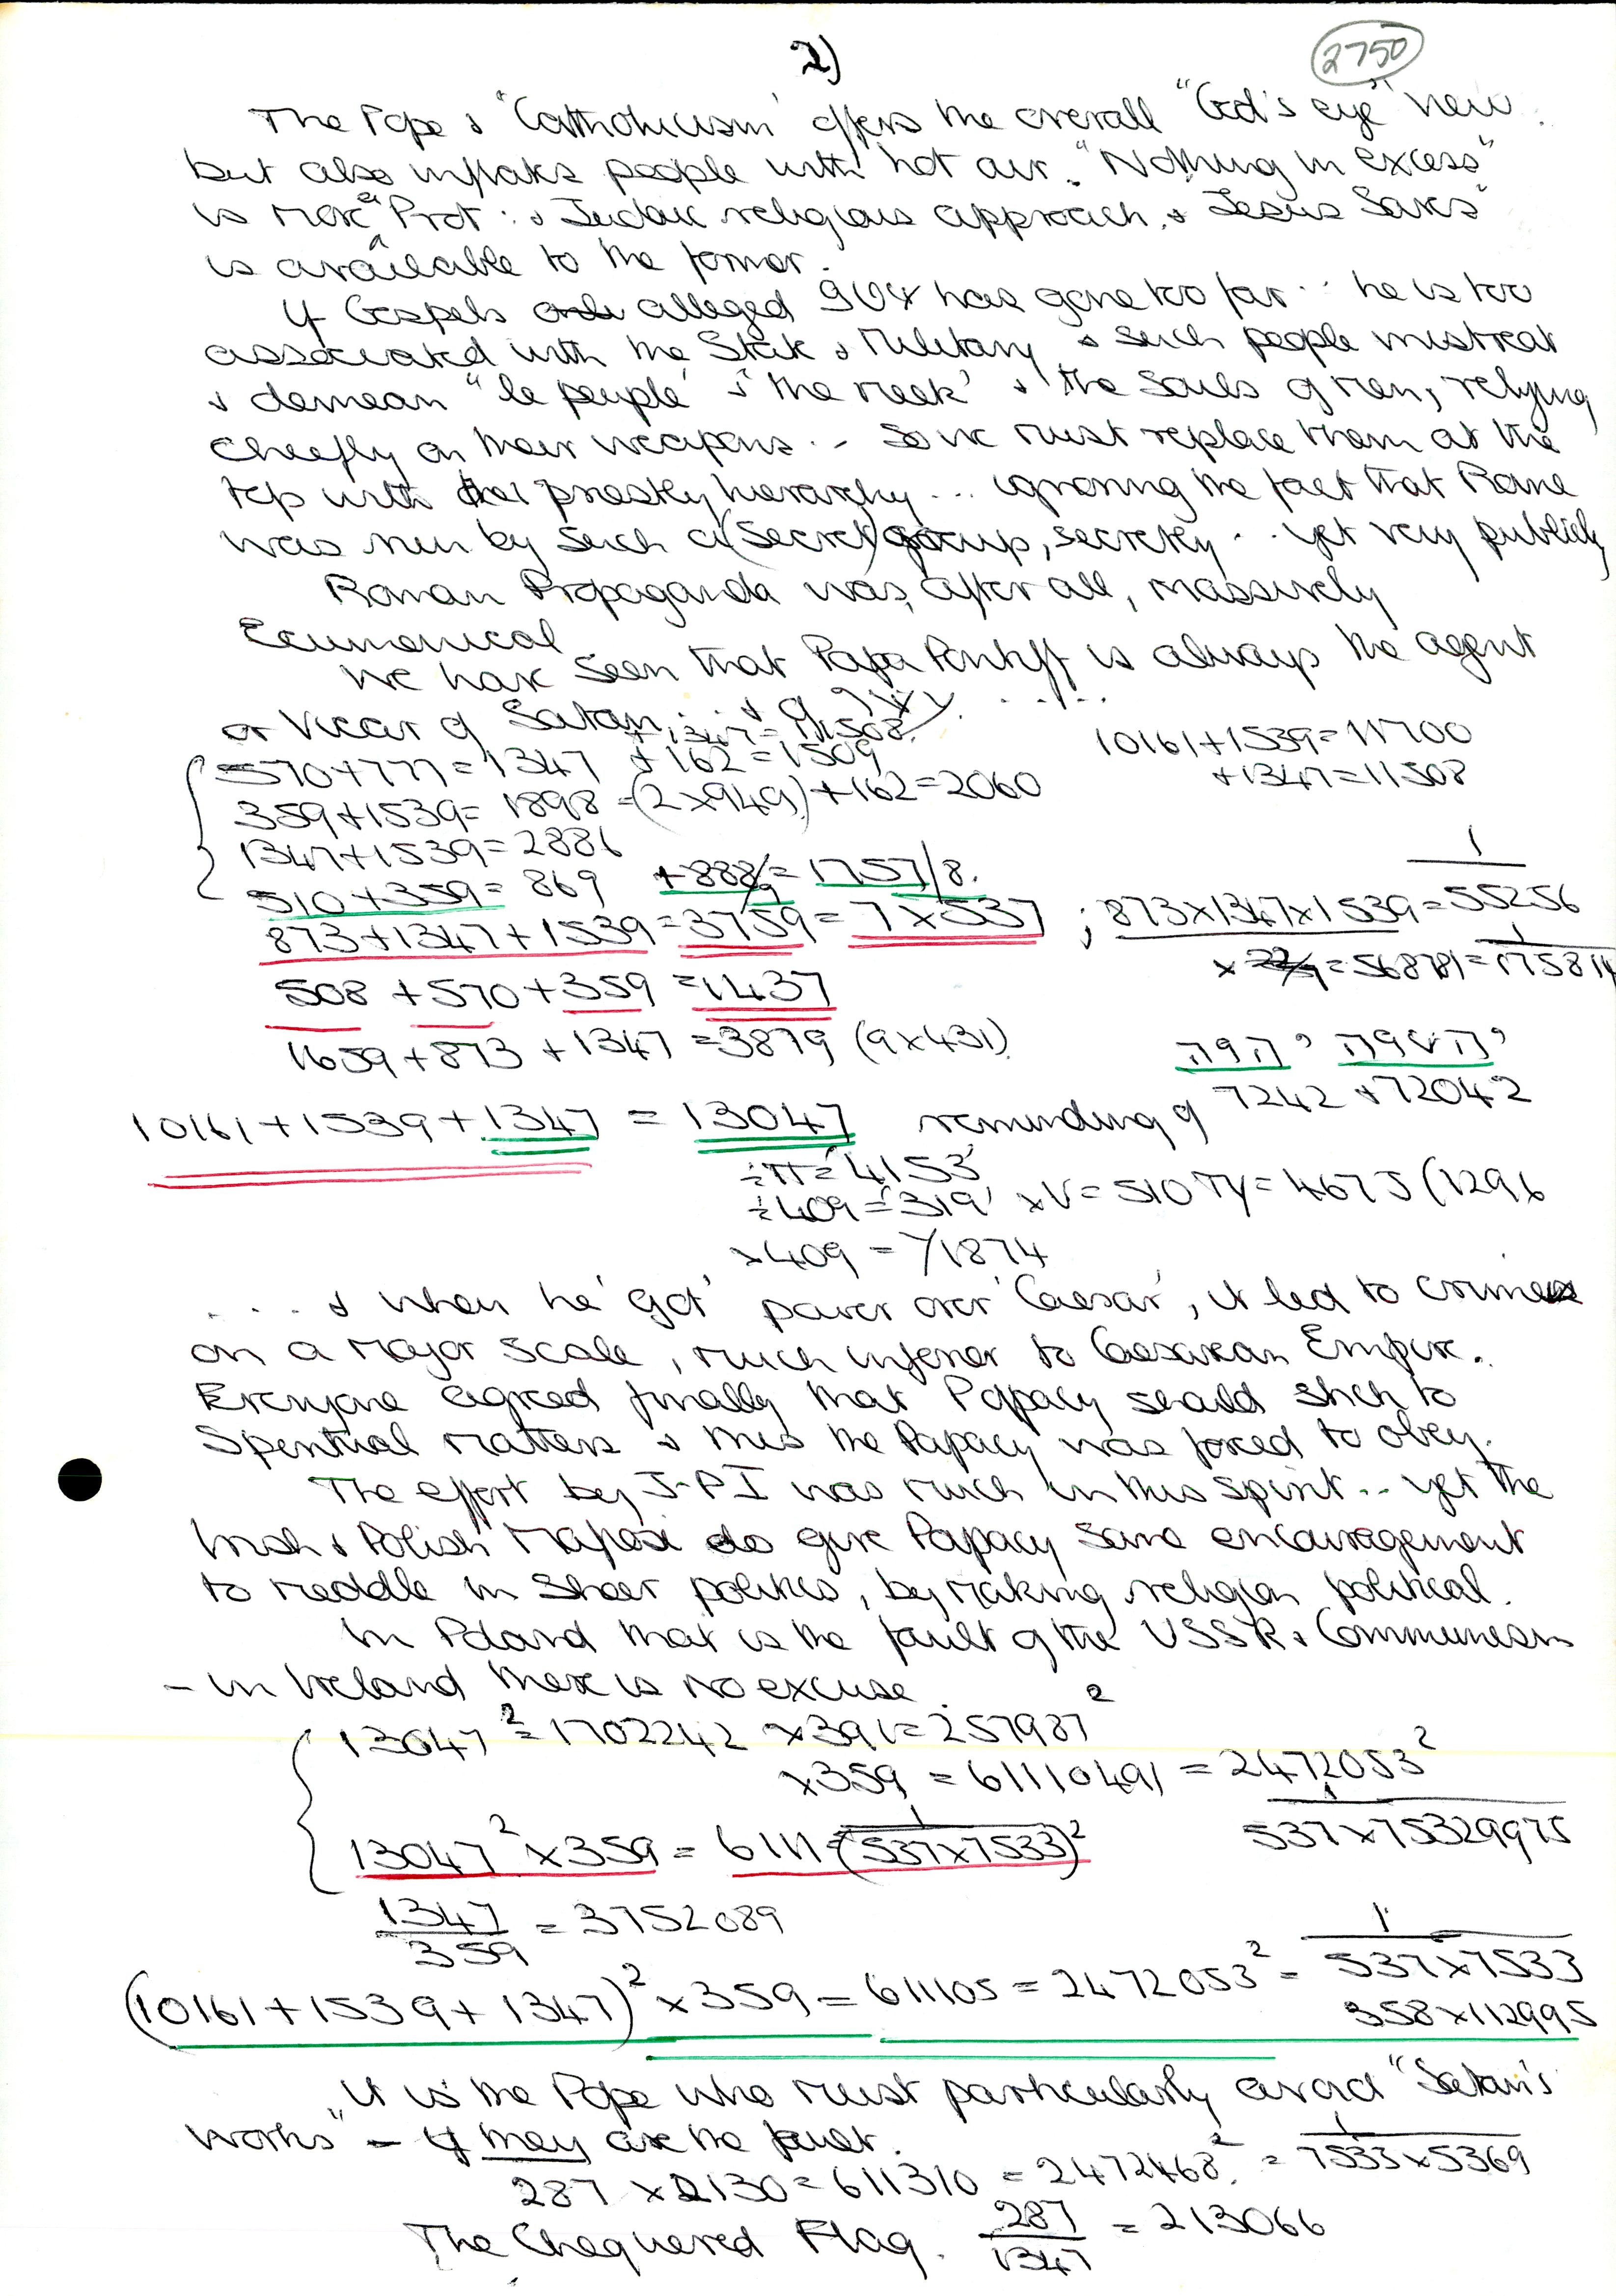 2)
2750
The Pope & "Catholicism" offers the overall "God's eye" view.
but also inflates people with hot air. "Nothing in excess"
is more a Prot: & Judaic religious approach, & "Jesus Saves"
is available to the former.
If Gospels alleged has gone too far.. he is too
associated with the State & Military & such people mistreat
& demean "le peuple" & "the meek" & the Souls of men, relying
cheefly on their weapons .. So we must replace them at the
top with priestly hierarchy ... ignoring the fact that Rome
was run by such a (secret) group, secretly .. yet very publicly
Roman Propaganda was, after all, massively
Ecumenical
We have seen that Papa Pontiff is always the agent
or Vicar of Satan ... & of
+1347=11508
570+777=1347 +162=1509
10161+1539=11700
+1347=11508
359+1539=1898=(2×949)+162=2060
1347+1539=2886
510+359=869 +888/9=1757/8.
873+1347+1539=3759=7×537 ; 873×1347×1539=1/55256
=56878
508+570+359=1437
1659+873+1347=3879 (9×431)
7242 & 72042
10161+1539+1347=13047 reminding of
÷π=4153
÷409='319' ×V=510 = 4675 (1296
×409=1/1874
.... & when he 'got' power over 'Caesar', it led to crime
on a major scale, much inferior to Caesarean Empire.
Everyone agreed finally that Papacy should stick to
Spiritual matters & thus the Papacy was forced to obey.
The effort by J-P I was much in this spirit .. yet the
Irish & Polish Mafias do give Papacy some encouragement
to meddle in sheer politics, by making religion political.
In Poland that is the fault of the USSR & Communism
- in Ireland there is no excuse.
13047²=1702242 ×391=257987²
×359=61110491=2472053²
13047²×359=6111=1/(537×7533)²
1/537×75329975
1347/359=3752089
(10161+1539+1347)²×359=611105=2472053²=1/537×7533
358×112995
It is the Pope who must particularly avoid "Satan's
works" - if they are the fault.
287×2130=611310=2472468²=1/7533×5369
The Chequered Flag. 287/1347=213066